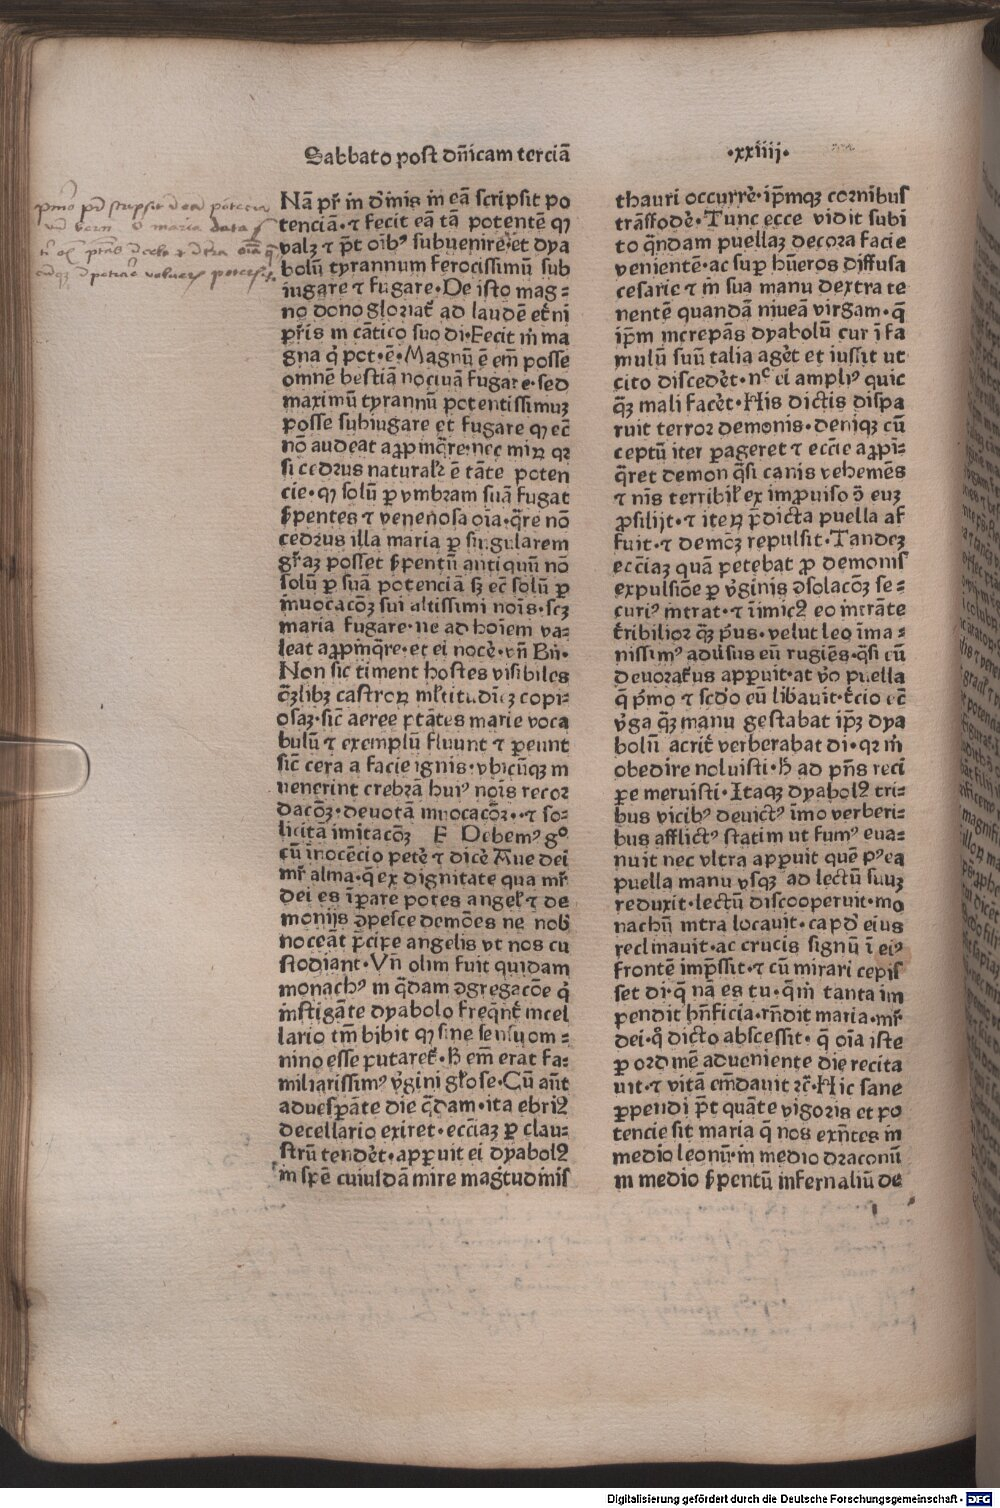 Sabbato post dn̄icam terciā
·xxiiij·
Nā pr̄ in dīmis in eā scripsit po
tenciā·⁊ fecit eā tā potentē ꝙ
valꝫ ⁊ p̄t oībꝰ subuenire·et dya
bolū tyrannum ferocissimū sub
iugare ⁊ fugare·De isto mag⸗
no dono gloriat᷑ ad laudē et̄ni
pr̄is in cātico suo di·Fecit m̄ ma
gna q̇ pot·ē·Magnū ē em̄ posse
omnē bestiā nociuā fugare·sed
maximū tyrannū potentissimuꝫ
posse subiugare et fugare ꝙ ec̄
nō audeat aꝓpinq̄re·nec miꝝ qꝛ
si cedrus natural̓r ē tāte poten
cie·ꝙ solū ꝑ vmbram suā fugat
ẜpentes ⁊ venenosa oīa·q̄re nō
cedrus illa maria ꝑ singularem
gr̄aꝫ posset ẜpentū antiquū nō
solū ꝑ suā potenciā sꝫ ec̄ solū ꝑ
inuocacōꝫ sui altissimi noīs·scꝫ
maria fugare·ne ad hoīem va⸗
leat aꝓpinq̄re·et ei nocē·vn̄ Bn̄·
Non sic timent hostes visibiles
q̄ꝫlibꝫ castroꝝ ml̓titudīeꝫ copi⸗
osaꝫ·sic̄ aeree ptātes marie voca
bulū ⁊ exemplū fluunt ⁊ ꝑeunt
sic̄ cera a facie ignis·vbicūqꝫ in
uenerint crebrā huiꝰ noīs recor
dacōꝫ·deuotā inuocacōꝫ·⁊ so⸗
licitā imitacōꝫ F Debemꝰ gͦ
cū inocēcio petē ⁊ dicē Aue dei
mr̄ alma·q̄ ex dignitate qua mr̄
dei es īperare potes angel̓ ⁊ de
monijs ꝯpesce demōes ne nob̄
noceāt p̄cipe angelis vt nos cu
stodiant·Vn̄ olim fuit quidam
monachꝰ in q̄dam ꝯgregacōe q̇
instigāte dyabolo freq̄nt̄ in cel
lario tm̄ bibit ꝙ sine sensu om⸗
nino esse putaret᷑·H̄ em̄ erat fa⸗
miliarissimꝰ v̓gini gl̓ose·Cū aūt
aduesꝑāte die q̄dam·ita ebriꝰ
de cellario exiret·ecciaꝫ ꝑ clau⸗
strū tendēt·apꝑuit ei dyabolꝰ
in spē cuiusdā mire magītudinis
thauri occurrē·ip̄mqꝫ cornibus
trāsfodē·Tunc ecce vidit subi
to q̄ndam puellaꝫ decora facie
venientē·ac suꝑ hūeros diffusa
cesarie ⁊ in sua manu dextra te
nentē quandā niueā virgam·q̄
ip̄m increpās dyabolū cur ī fa
mulū suū talia agēt et iussit ut
cito discedēt·nͨ ei ampliꝰ quic
q̄ꝫ mali facēt·His dictis dispa
ruit terror demonis·deniqꝫ cū
ceptū iter ꝑageret ⁊ eccīe aꝓpi⸗
q̄ret demon q̄si canis vehemēs
⁊ nīs terribil̓ ex improuiso ꝯ̄ euꝫ
ꝓsilijt·⁊ iteꝝ p̄dicta puella af
fuit·⁊ demoꝫ repulsit·Tandeꝫ
ecciaꝫ quā petebat ꝓ demonis
expulsiōe ꝑ v̓ginis ꝯsolacōꝫ se⸗
curiꝰ intrat·⁊ īimicꝰ eo intrāte
t̓ribilior q̄ꝫ pͥus·velut leo īma⸗
nissimꝰ adūsus eū rugiēs·q̄si cū
deuoratͧus apꝑuit·at v̓o puella
q̄ pͥmo ⁊ scd̓o eū libauit·t̓cio ec̄
v̓ga q̄ꝫ manu gestabat ip̄ꝫ dya
bolū acrit̓ verberabat di·qꝛ m̄
obedire noluisti·h̄ ad pn̄s reci
ꝑe meruisti·Itaqꝫ dyabolꝰ tri⸗
bus vicibꝰ deuictꝰ īmo verberi⸗
bus afflictꝰ statim ut fumꝰ eua⸗
nuit nec vltra apꝑuit quē pꝰea
puella manu vsqꝫ ad lectū suuꝫ
reduxit·lectū discooperuit·mo
nachū intra locauit·capd̓ eius
reclinauit·ac crucis signū ī eiꝰ
frontē imp̄ssit·⁊ cū mirari cepis
set di·q̄ nā es tu·q̄ m̄ tanta im
pendit bn̄ficia·rn̄dit maria·mr̄
dei·q̊ dicto abscessit·q̄ oīa iste
ꝑ ordinē adueniente die recita
uit·⁊ vitā em̄dauit ⁊c̄·Hic sane
ꝑpendi p̄t quāte vigoris et po
tencie sit maria q̄ nos exn̄tes in
medio leonū·in medio draconū
in medio ẜpentū infernaliū de
Digitalisierung gefördert durch die Deutsche Forschungsgemeinschaft - DFG